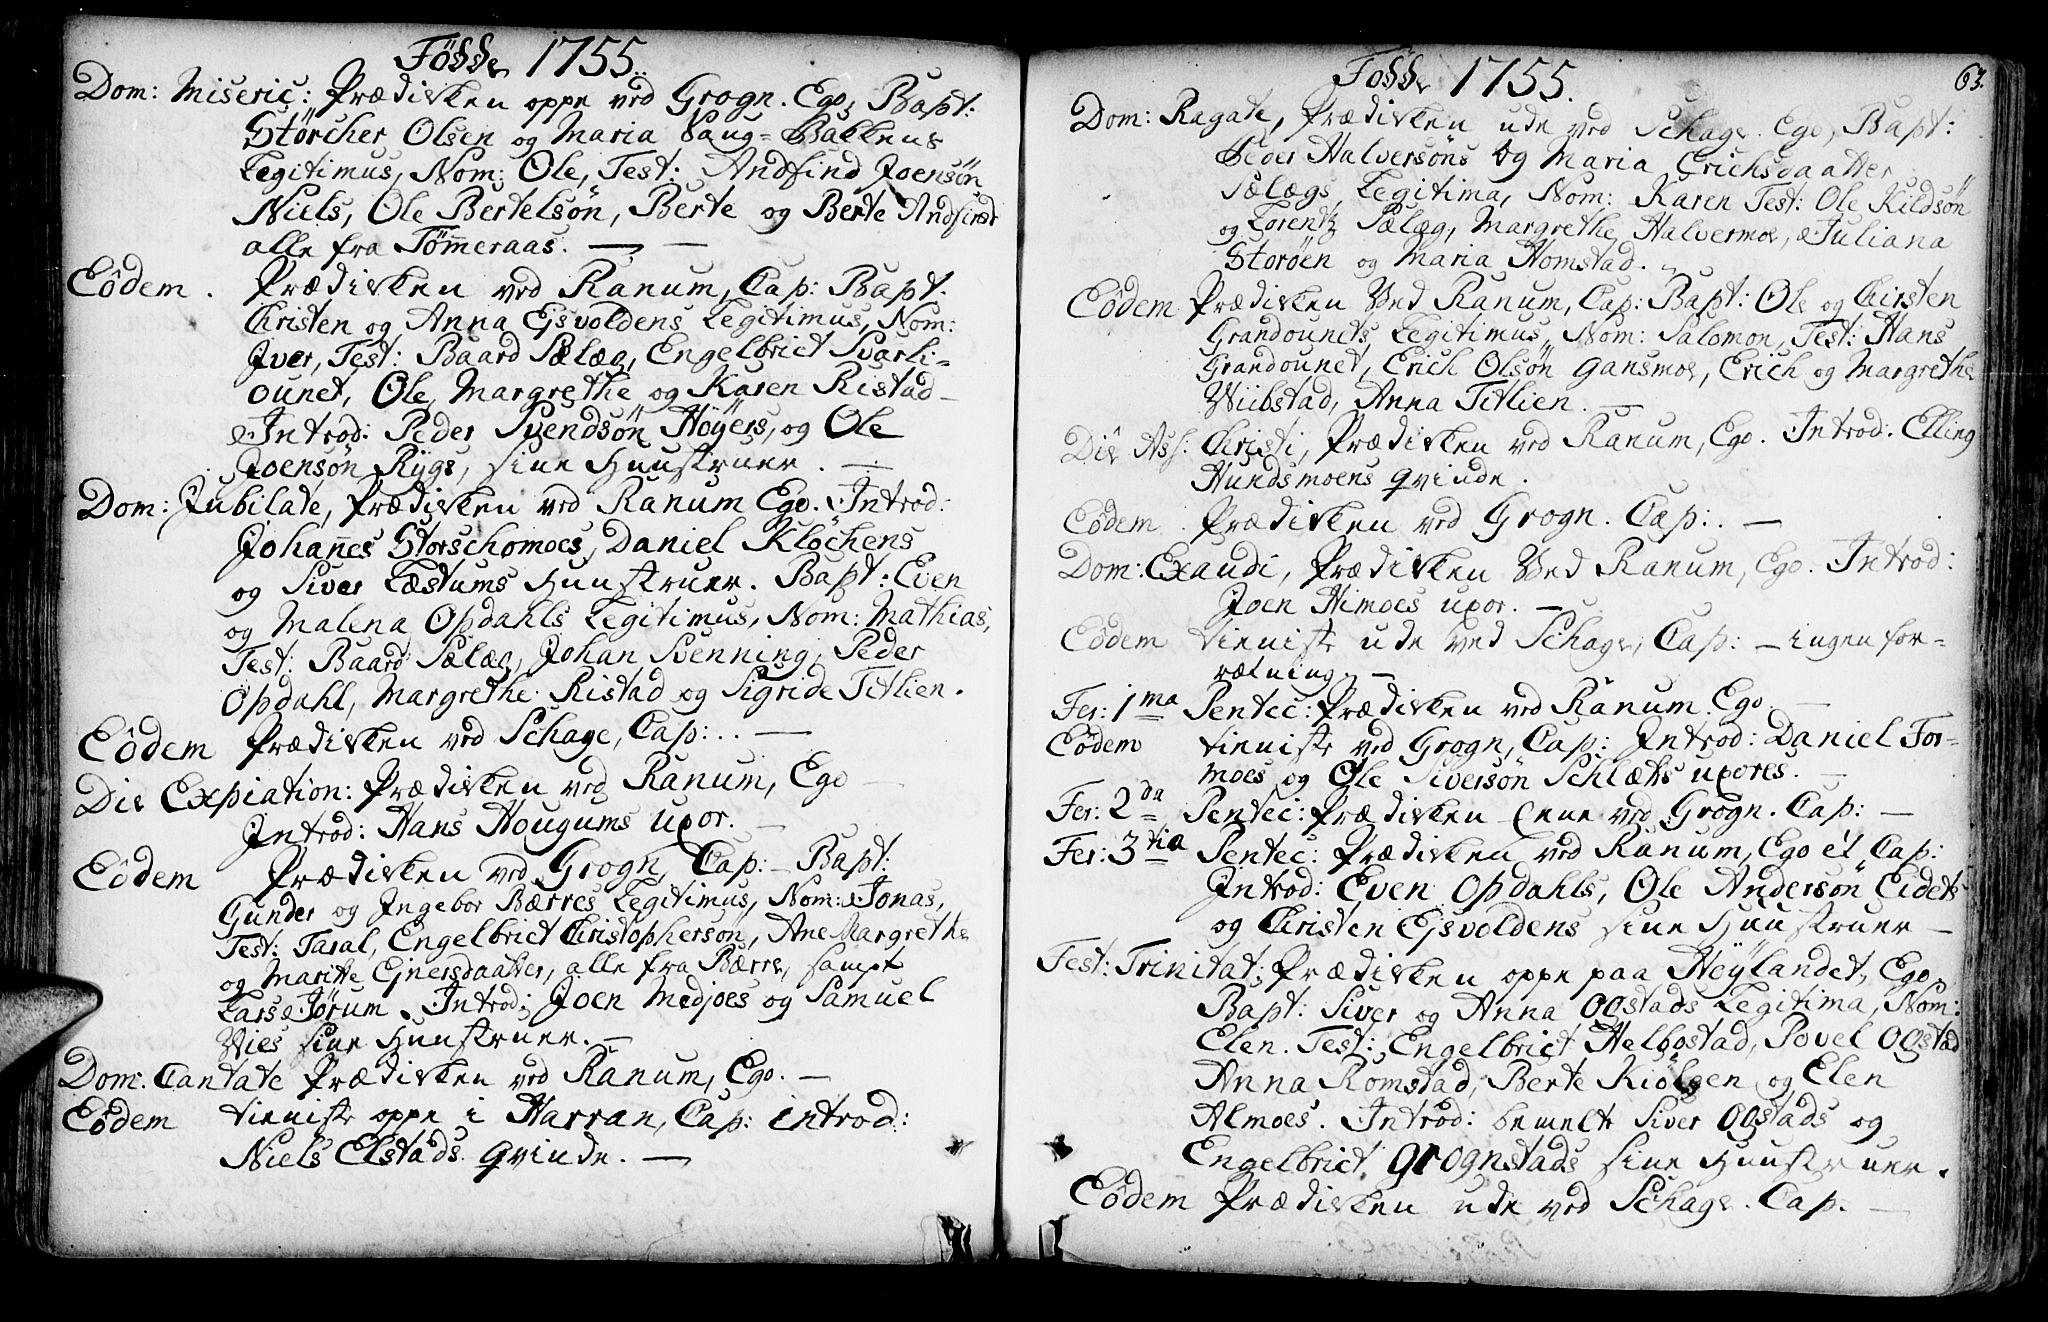 Födde 1755.
Dom: Miseric: Prædicken oppe ved Grogn. Ego, Bapt:
Störcher Olsen og Maria Haug=Bakkens
Legitimus, Nom: Ole, Test: Andfind Joensön
Niels, Ole Bertelsön, Berte og Berte Andfinsd
alle fra Tömmeraas. —
Eôdem. Prædicken ved Ranum, Cap: Bapt:
Christen og Anna Ejsvoldens Legitimus, Nom:
Iver, Test: Baard Sælæg, Engelbrict Svarli-
ounet, Ole, Margrethe og Karen Ristad –
Introd: Peder Svendsön Höyers, og Ole
Joensön Rygs, sine Huustruer. —
Dom: Jubilate, Prædicken ved Ranum Ego. Introd:
Johannes Storschomoes, Daniel Klöchens
og Siver Læstums Huustruer. Bapt: Even
og Malena Opdahls Legitimus, Nom: Mathias,
Test: Baard Sælæg, Johan Svenning, Peder
Opdahl, Margrethe Ristad og Sigride Tetlien.
Eôdem Prædicken ved Schage, Cap: . —
Die Expiation: Prædicken ved Ranum, Ego —
Introd: Hans Hougums uxor. —
Eôdem Prædicken ved Grogn, Cap: – Bapt:
Gunder og Ingebor Bærres Legitimus, Nom: Jonas,
Test: Taral, Engelbrict Christophersön, Ane Margrethe
og Maritte Ejnersdaatter, alle fra Bærre, sampt
Lars Jörum. Introd: Joen Medjoes og Samuel
Vies sine Huustruer. —
Dom: Cantate Prædicken ved Ranum, Ego. —
Eôdem tieniste oppe i Harran, Cap: introd:
Niels Elstads qvinde. —
63.
Födde 1755.
Dom: Rogate, Prædicken ude ved Schage. Ego, Bapt:
Peder Halversöns og Maria Erichsdaatter
Sælægs Legitima, Nom: Karen Test: Ole Kildsön
og Lorentz Sælæg, Margrethe Halvermoe, Juliana
Storöen og Maria Homstad.
Eôdem Prædicken Ved Ranum, Cap: Bapt: Ole og Chirsten
Grandounets Legitimus, Nom: Salomon, Test: Hans
Grandounet, Erich Olsön Gansmoe, Erich og Margrethe
Viibstad, Anna Tetlien. —
Die Ass: Christi, Prædicken ved Ranum, Ego. Introd: Elling
Hundsmoens qvinde.
Eôdem. Prædicken ved Grogn. Cap: . —
Dom: Exaudi, Prædicken Ved Ranum, Ego. Introd:
Joen Himoes uxor. —
Eôdem tieniste ude ved Schage, Cap: — ingen for-
rætning. —
Fer: 1ma Pentec: Prædicken ved Ranum Ego. —
Eôdem tieniste ved Grogn, Cap: Introd: Daniel For-
moes og Ole Siversön Schlæts uxores. —
Fer: 2da Pentec: Prædicken ene ved Grogn. Cap: —
Fer: 3tia Pentec: Prædicken ved Ranum, Ego et Cap:
Introd: Even Opdahls, Ole Andersön Eidets
og Christen Ejsvoldens sine Huustruer —
Fest: Trinitat: Prædicken oppe paa Höylandet, Ego.
Bapt: Siver og Anna Oostads Legitima, Nom:
Elen. Test: Engelbrict Helbostad, Povel Oostad
Anna Romstad, Berte Kiölsen og Elen
Almoes. Introd: bemelte Siver Oostads og
Engelbrict Grognstads sine Huustruer.
Eôdem Prædicken ude ved Schage. Cap. —